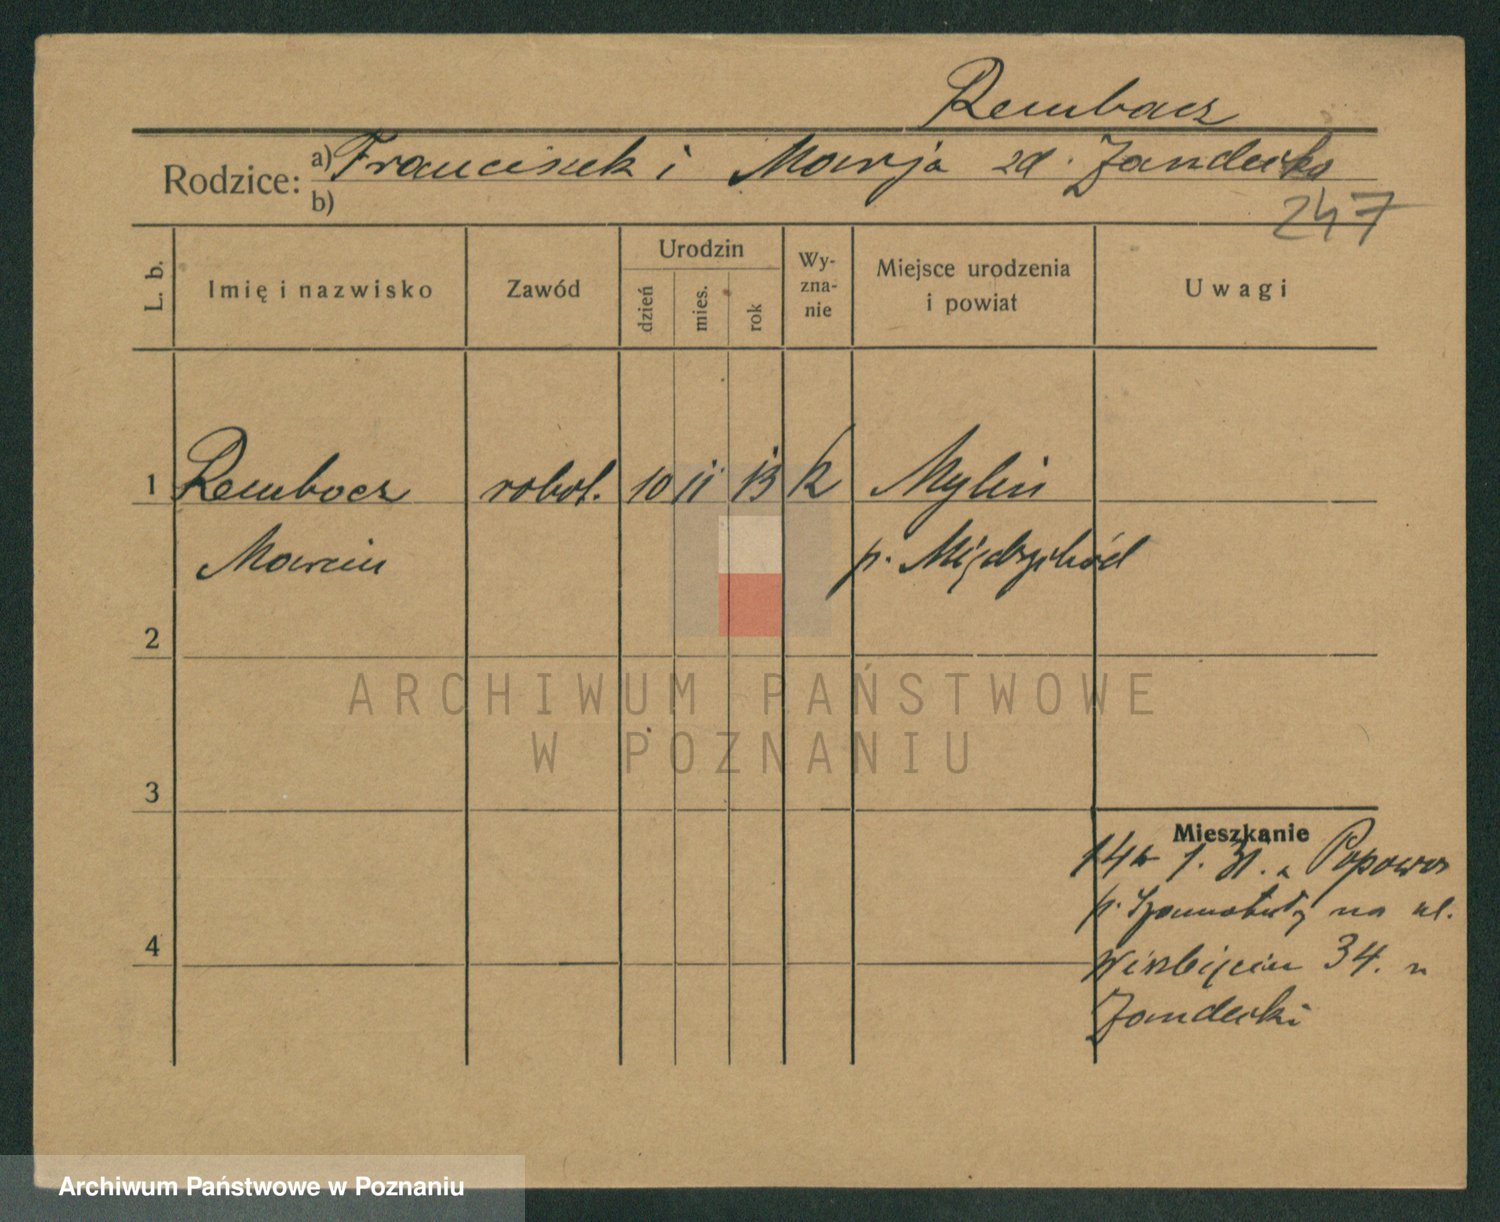 Rembacz
Rodzice: a) Franciszek i Marja zd. Zandecka
b)
247
L. b.
Imię i nazwisko
Zawód
Urodzin
dzień
mies.
rok
Wy-
zna-
nie
Miejsce urodzenia
i powiat
Uwagi
1 Rembacz robot. 10 11 13 k Mylin
Marcin p. Międzychód
2
ARCHIWUM PAŃSTWOWE
W POZNANIU
3
Mieszkanie
1. 31. z Popowa
p. Szamotuły na ul.
34. u
4
Zandecki
Archiwum Państwowe w Poznaniu